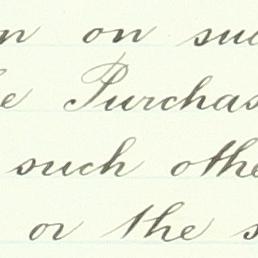 n on suc
e Purchas
such othe
or the s